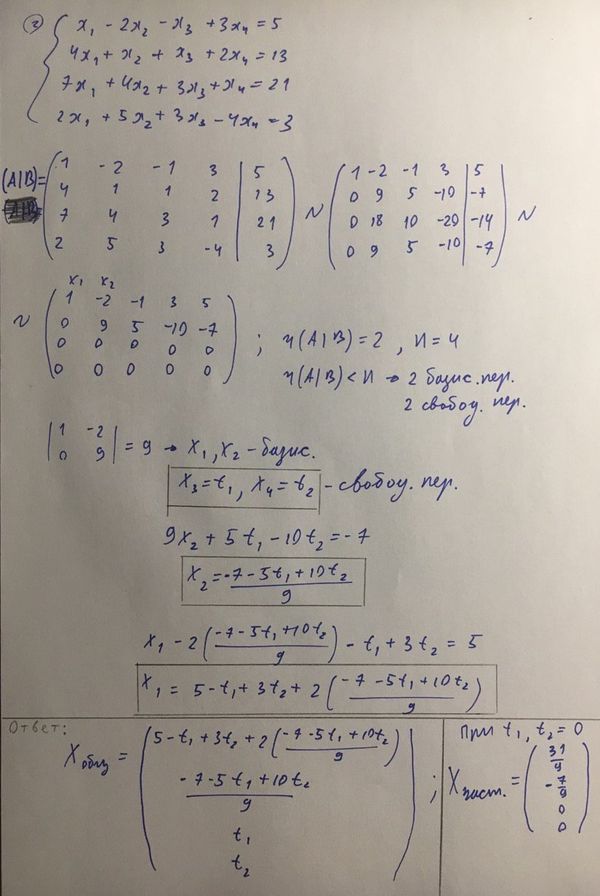 2) x₁ - 2x₂ - x₃ + 3x₄ = 5
4x₁ + x₂ + x₃ + 2x₄ = 13
7x₁ + 4x₂ + 3x₃ + x₄ = 21
2x₁ + 5x₂ + 3x₃ - 4x₄ = 3
(A|B) = ( 1 -2 -1 3 | 5 ) ~ ( 1 -2 -1 3 | 5 ) ~
4 1 1 2 | 13 0 9 5 -10 | -7
7 4 3 1 | 21 0 18 10 -20 | -14
2 5 3 -4 | 3 0 9 5 -10 | -7
x₁ x₂
~ ( 1 -2 -1 3 5 )
0 9 5 -10 -7
0 0 0 0 0 ; r(A|B) = 2 , n = 4
0 0 0 0 0 r(A|B) < n → 2 базис. пер.
2 свобод. пер.
| 1 -2 |
| 0 9 | = 9 → x₁, x₂ - базис.
x₃ = t₁, x₄ = t₂ - свобод. пер.
9x₂ + 5t₁ - 10t₂ = -7
x₂ = (-7 - 5t₁ + 10t₂)/9
x₁ - 2((-7 - 5t₁ + 10t₂)/9) - t₁ + 3t₂ = 5
x₁ = 5 - t₁ + 3t₂ + 2((-7 - 5t₁ + 10t₂)/9)
Ответ:
X общ = ( 5 - t₁ + 3t₂ + 2((-7 - 5t₁ + 10t₂)/9) )
(-7 - 5t₁ + 10t₂)/9
t₁
t₂ ;
При t₁, t₂ = 0
X част. = ( 31/9 )
-7/9
0
0